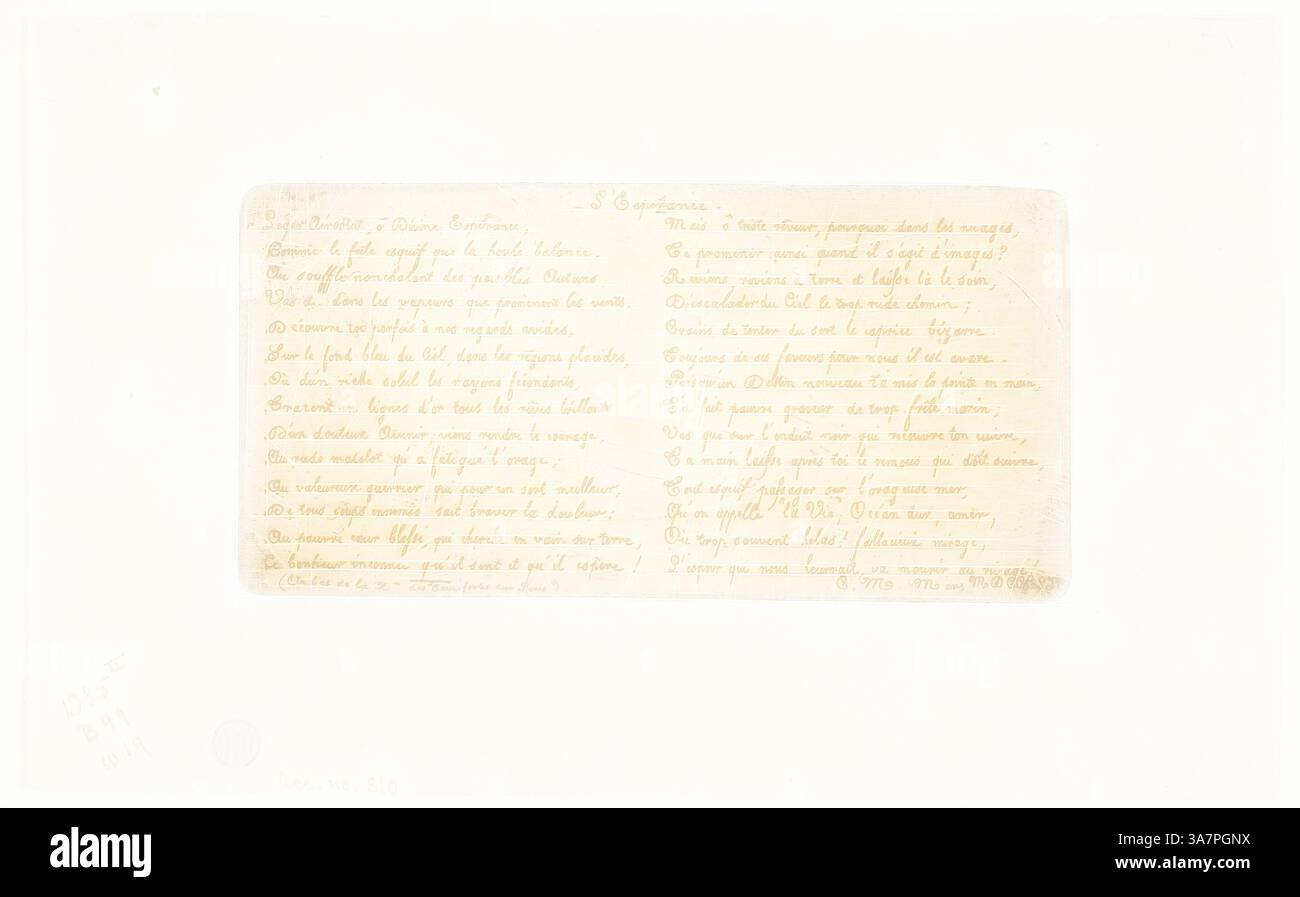 - L'Espérance -
Léger Aérostat, ô Divine Espérance,
Comme le frêle esquif que la houle balance.
Au souffle nonchalant des paisibles Autans
Vas et dans les vapeurs que promènent les vents.
Découvre toi parfois à nos regards avides,
Sur le fond bleu du Ciel, dans les régions placides,
Où d'un réelle soleil les rayons fécondants,
Tracent en lignes d'or tous les rêves brillants
D'un douteux Avenir, viens rendre le courage,
Au rude matelot qu'a fatigué l'orage;
Au valeureux guerrier qui pour un sort meilleur,
De tous coups ennemis sait braver la douleur;
Au pauvre cœur blessé, qui cherche en vain sur terre,
Le bonheur inconnu qu'il sent et qu'il espère!
(Au bas de la
Mais ô triste rêveur, pourquoi dans les nuages,
Te promener ainsi quand il s'agit d'images?
Reviens, reviens à terre et laisse là le soin,
D'escalader du Ciel le trop rude chemin;
Crains de tenter du sort le caprice bizarre
Toujours de ses faveurs pour nous il est avare -
Puisqu'un Destin nouveau t'a mis la pointe en main,
T'a fait pauvre graveur de trop frêle marin;
Vas que sur l'enduit noir qui recouvre ton cuivre,
Ta main laisse après toi le remous qui doit suivre,
Tout esquif passager sur l'orageuse mer,
Qu'on appelle "la Vie", Océan dur, amer,
Où trop souvent hélas! fallacieux mirage,
L'espoir qui nous leurrait, va mourir au rivage!
C. M.
B 49
W 19
acc. no. 810
alamy
Image ID: 3A7PGNX
www.alamy.com